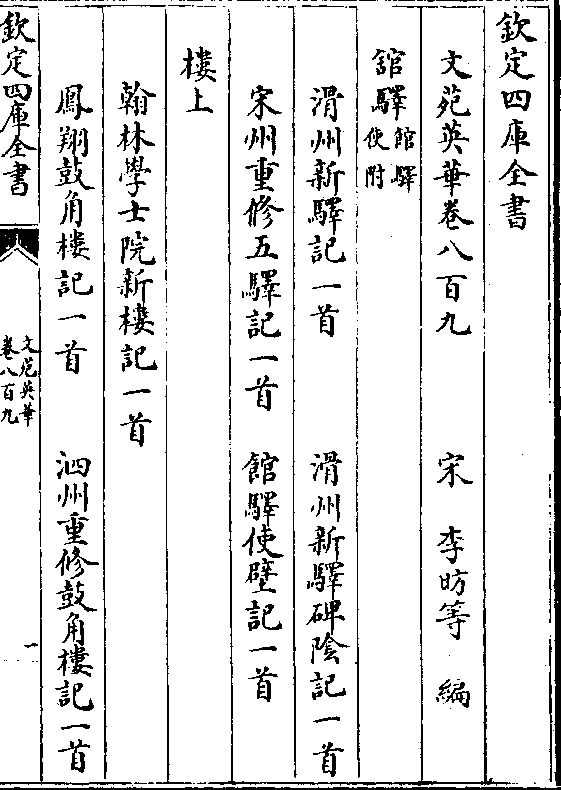 欽定四庫全書
文苑英華卷八百九 宋 李昉等 編
舘驛館驛使附
滑州新驛記一首 滑州新驛碑陰記一首
宋州重修五驛記一首 館驛使壁記一首
樓上
翰林學士院新樓記一首
鳳翔鼓角樓記一首 泗州重修鼓角樓記一首
欽定四庫全書
文苑英華
卷八百九
一